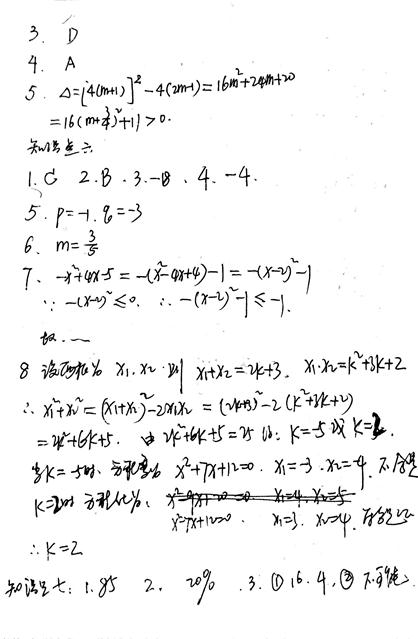 3. D
4. A
5. Δ=[4(m+1)]²-4(2m-1)=16m²+24m+20
=16(m+¾)²+11>0.
知识点六
1. C 2. B. 3. -18. 4. -4.
5. p=-1. q=-3
6. m=3/5
7. -x²+4x-5=-(x²-4x+4)-1=-(x-2)²-1
∵ -(x-2)²≤0. ∴ -(x-2)²-1≤-1.
故.一
8 设两根为 x₁.x₂.则 x₁+x₂=2k+3. x₁·x₂=k²+3k+2
∴ x₁²+x₂²=(x₁+x₂)²-2x₁x₂=(2k+3)²-2(k²+3k+2)
=2k²+6k+5. 由 2k²+6k+5=25 得: k=-5或k=2.
当k=-5时.方程为 x²+7x+12=0. x₁=-3.x₂=-4.不合题
k=2时 方程化为: x²-9x+20=0 x₁=4.x₂=5
x²-7x+12=0. x₁=3. x₂=4. 符合题
∴ k=2
知识点七: 1. 85 2. 20% .3. ① 16.4, ② 不可能.